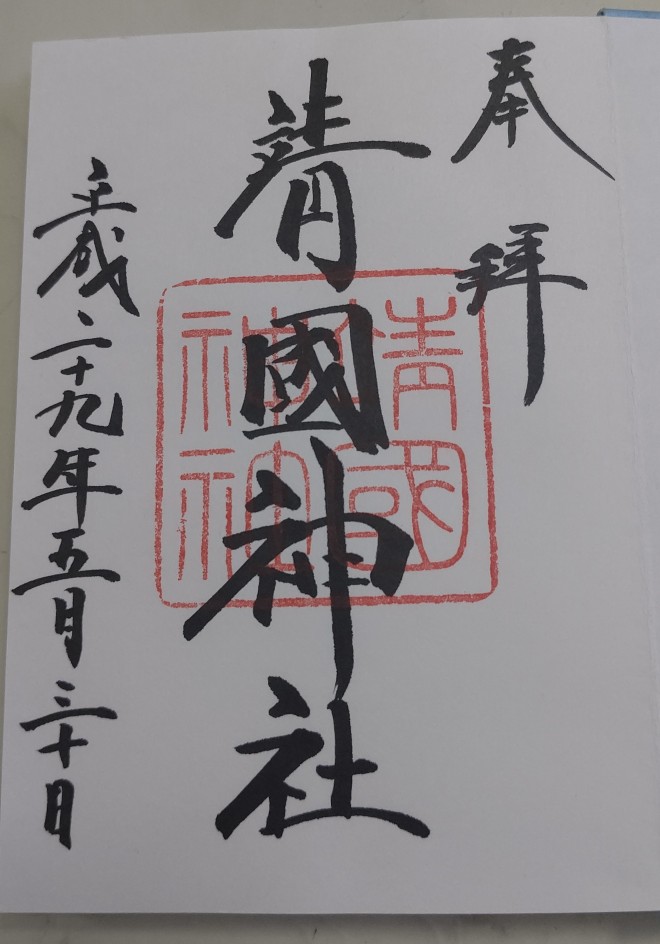 奉拝
靖國神社
靖國神社
平成二十九年五月三十日